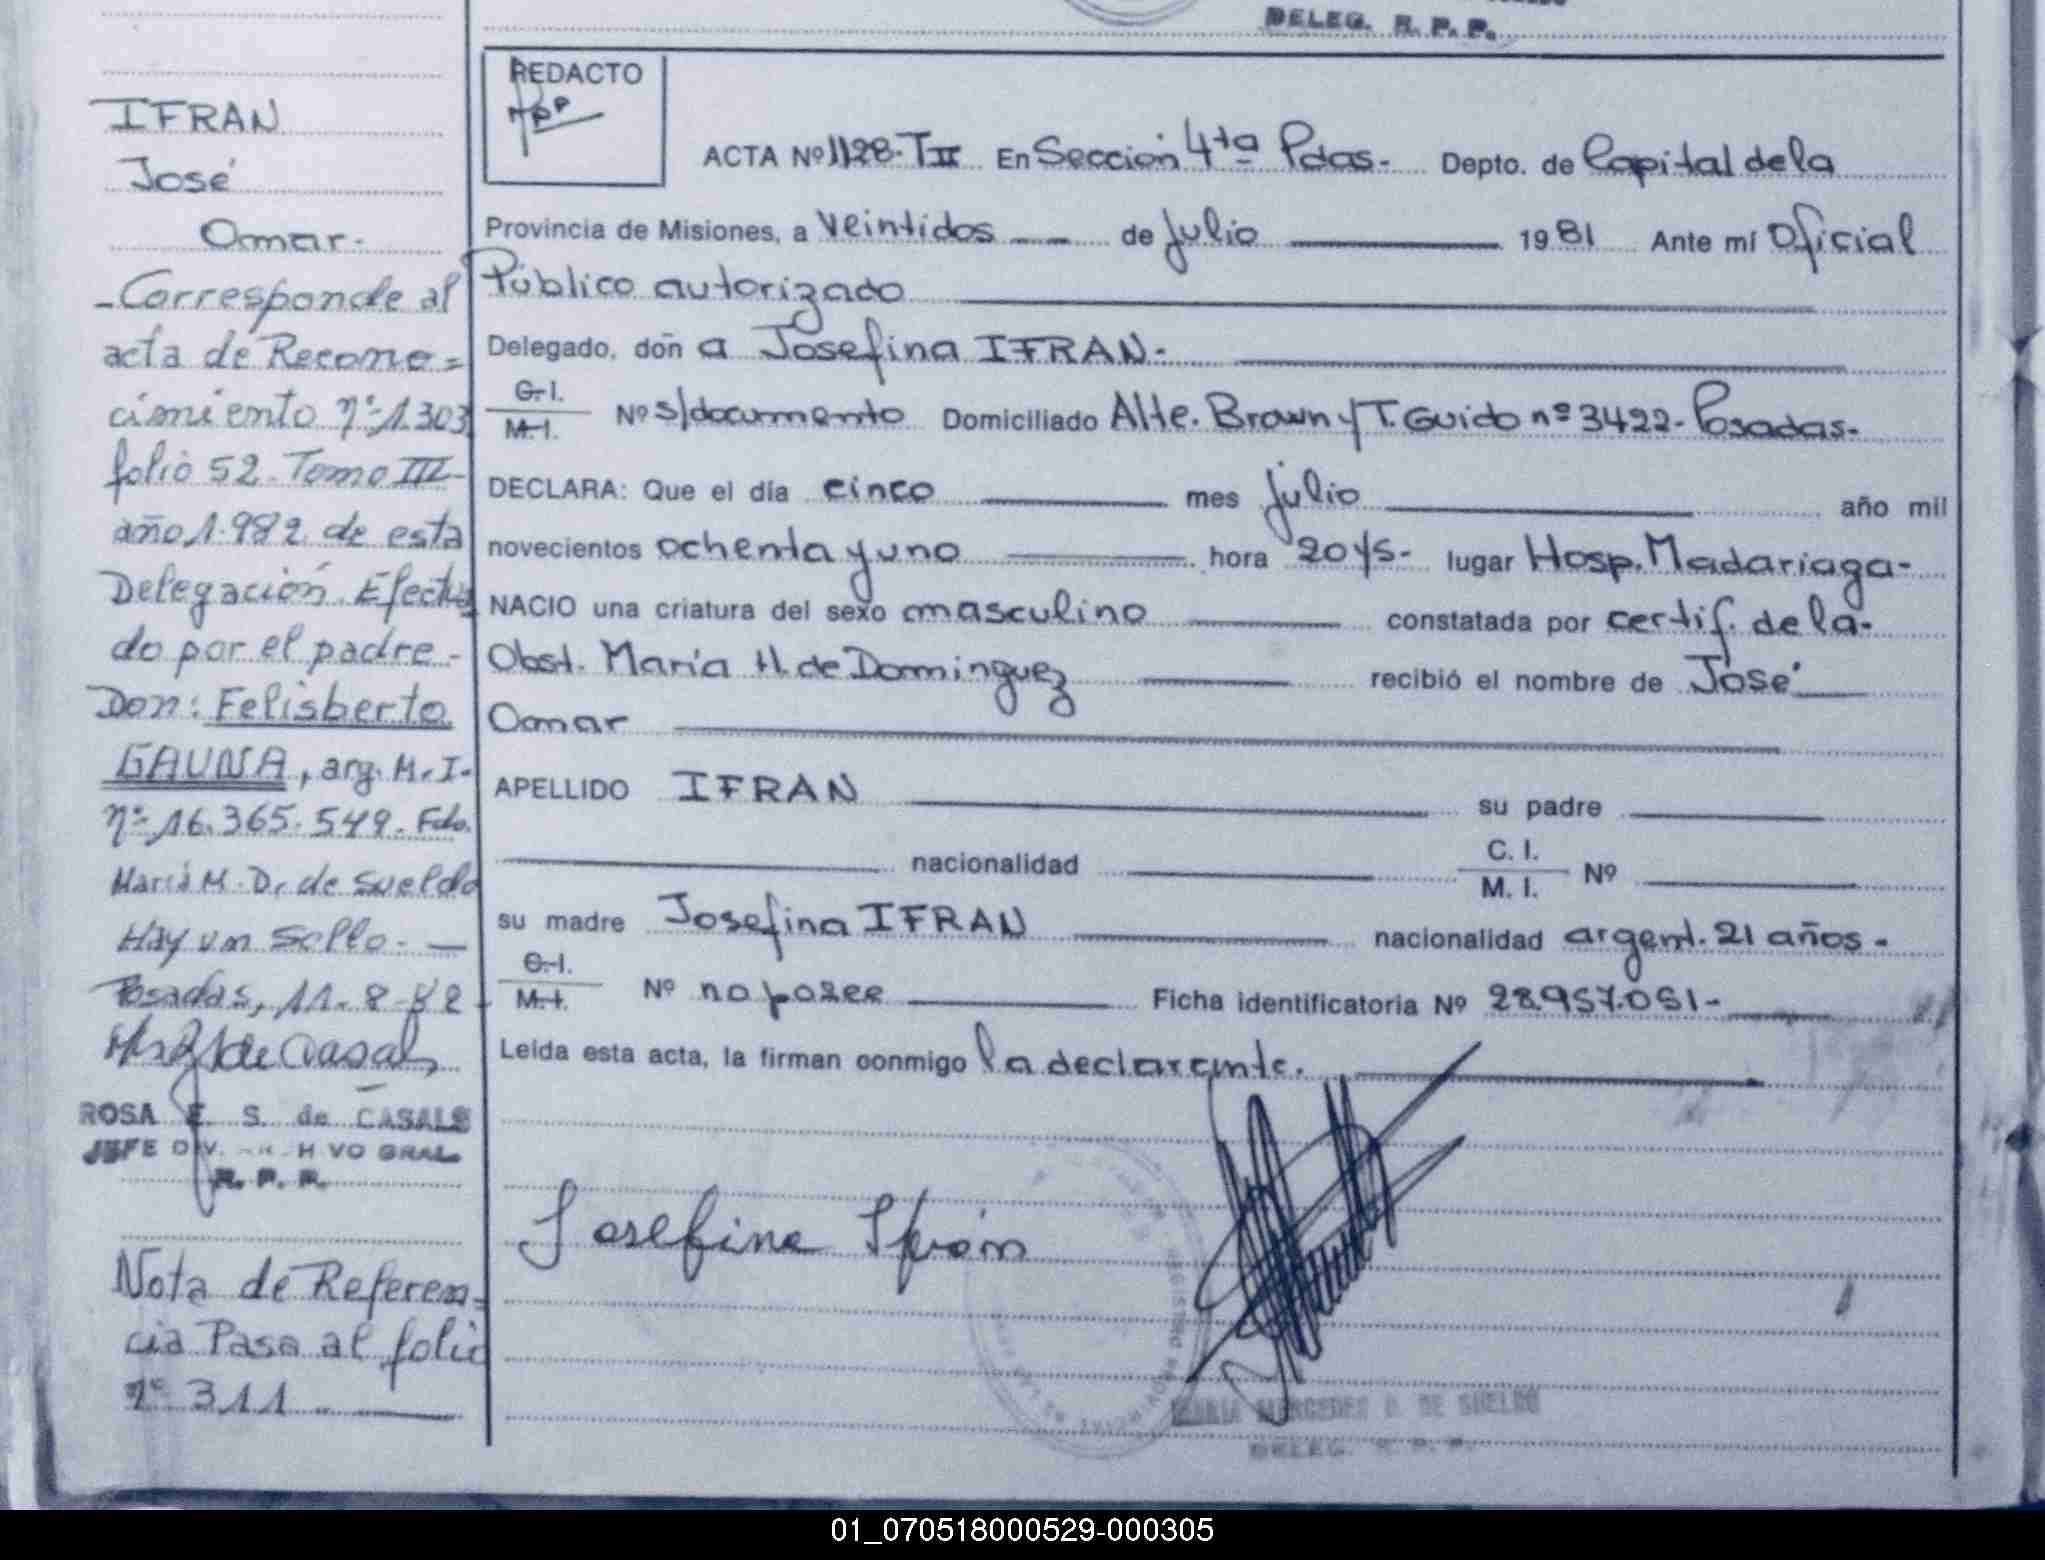 DELEG. R. P. P.
IFRAN
José
Omar-
-Corresponde al
acta de Recono=
cimiento nº-1.303
folio 52-Tomo III-
año 1.982 de esta
Delegación. Efectua
do por el padre-
Don: Felisberto
GAUNA, arg. M. I-
nº-16.365.549-Fdo.
María M. D. de Sueldo
Hay un Sello.-
Posadas, 11-8-82-
de Casals
ROSA E. S. de CASALS
JEFE DIV. H VO GRAL
R. P. P.
Nota de Referen=
cia Pasa al folio
nº 311
REDACTO
ACTA Nº 1128-TII En Sección 4ta Pdas- Depto. de Capital de la
Provincia de Misiones, a veintidos de julio 1981 Ante mí Oficial
Público autorizado
Delegado, don a Josefina IFRAN-
C. I.
M. I.
Nº s/documento Domiciliado Alte. Brown y T. Guido nº 3422-Posadas-
DECLARA: Que el día cinco mes julio año mil
novecientos ochenta y uno hora 20 45- lugar Hosp. Madariaga-
NACIO una criatura del sexo masculino constatada por certif. de la-
Obst. María H. de Dominguez recibió el nombre de José
Omar
APELLIDO IFRAN su padre
nacionalidad C. I.
M. I. Nº
su madre Josefina IFRAN nacionalidad argent. 21 años-
C. I.
M. I.
Nº no posee Ficha identificatoria Nº 28.957.051-
Leida esta acta, la firman conmigo la declarante.
Josefina Ifrán
MARIA MERCEDES D. DE SUELDO
DELEG. R. P. P.
01_070518000529-000305